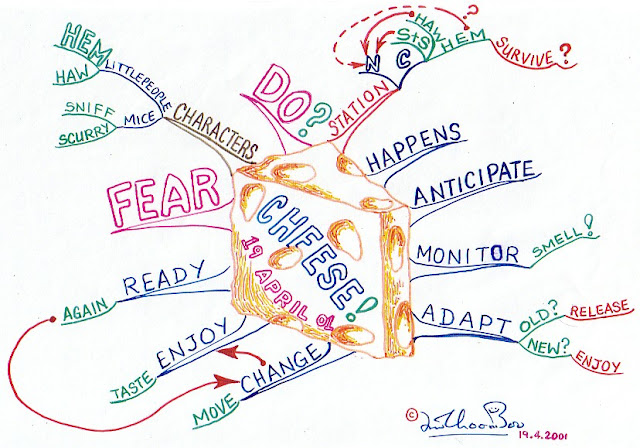 CHEESE!
19 APRIL 01
DO?
STATION
N
C
S+S
HAW
HEM
?
SURVIVE?
HAPPENS
ANTICIPATE
MONITOR
SMELL!
ADAPT
OLD?
RELEASE
NEW?
ENJOY
CHANGE
MOVE
ENJOY
TASTE
READY
AGAIN
FEAR
CHARACTERS
LITTLE PEOPLE
HEM
HAW
MICE
SNIFF
SCURRY
©
19.4.2001